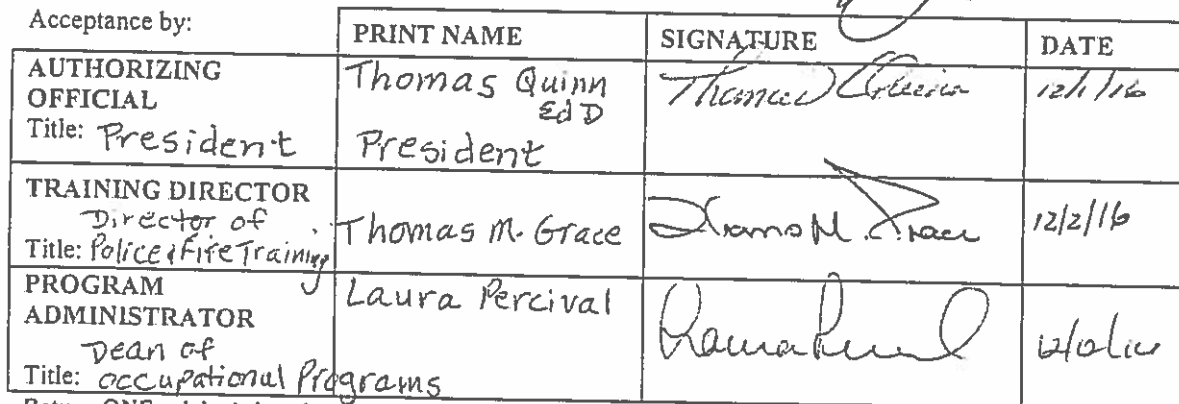 Acceptance by:
PRINT NAME SIGNATURE DATE
AUTHORIZING OFFICIAL
Title: President
Thomas Quinn
EdD
President
Thomas Quinn
12/1/16
TRAINING DIRECTOR
Director of
Title: Police & Fire Training
Thomas M. Grace
Thomas M. Grace
12/2/16
PROGRAM ADMINISTRATOR
Dean of
Title: Occupational Programs
Laura Percival
ONE